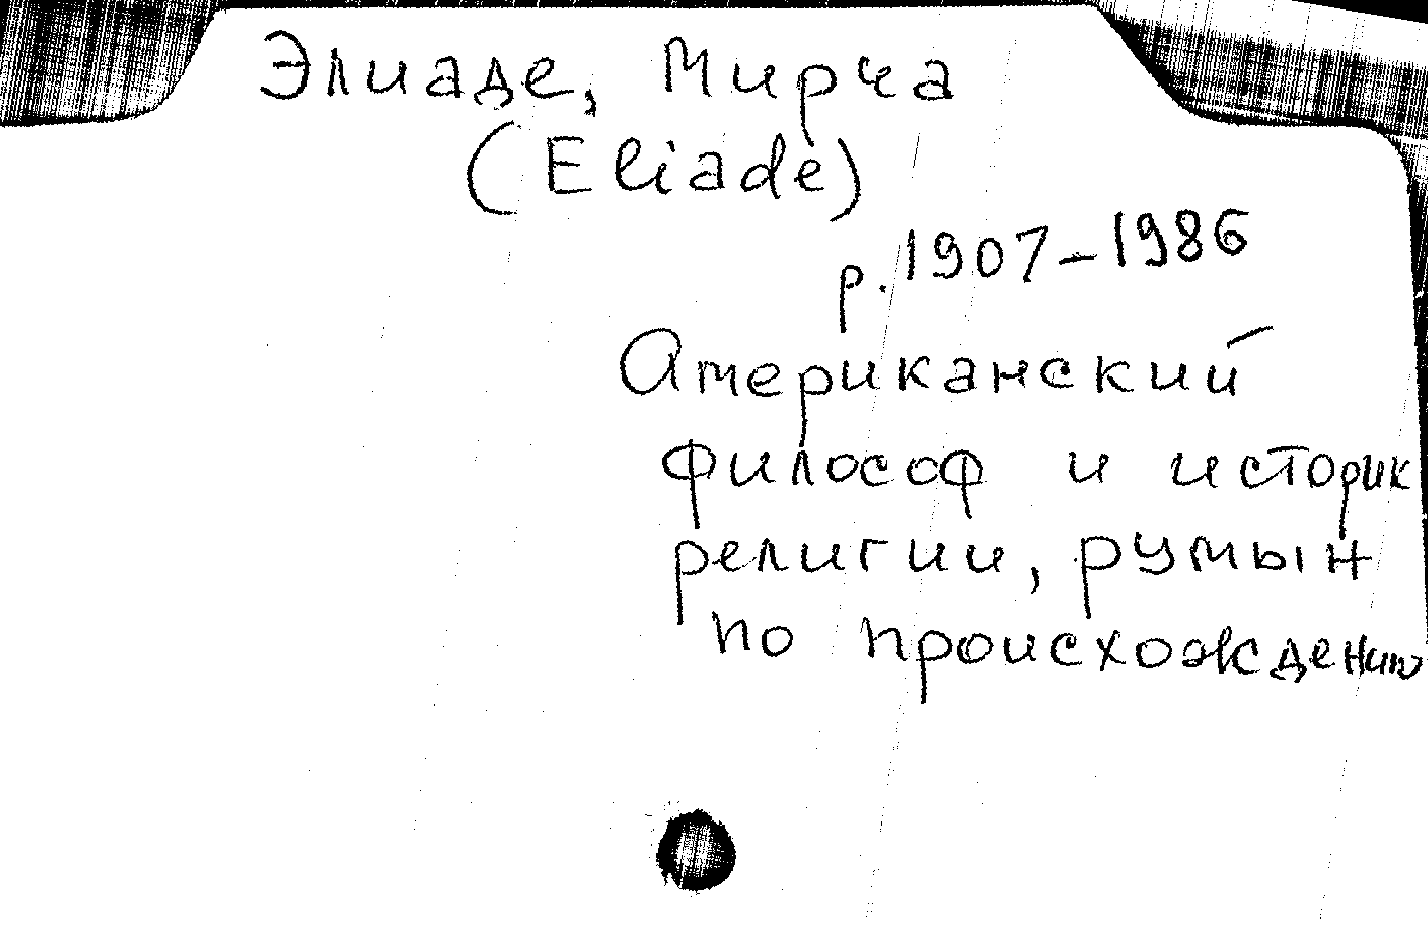 Элиаде, Мирча
(Eliade)
р. 1907-1986
Американский
философ и историк
религии, румын
по происхождению